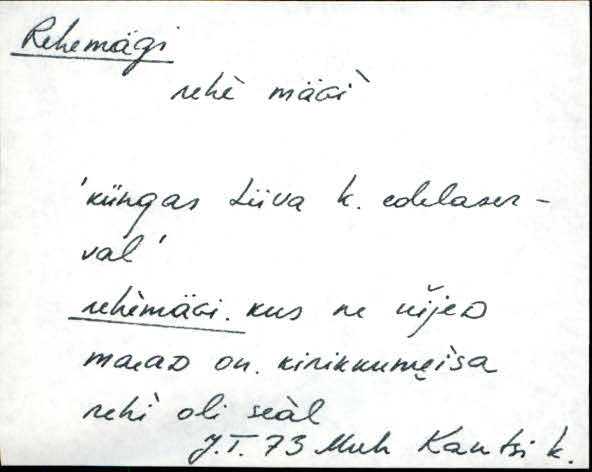 Rehemägi
rehè mäGì
'küngas Liiva k. edelaser-
val'
rehèmäGi. kus ne uijeD
majaD on. kirikkumeisa
rehì oli seàl
J.T. 73 Muh Kantsi k.